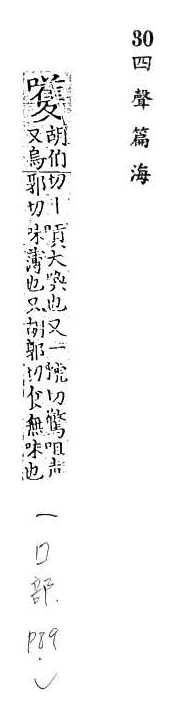 30 四聲篇海
嚄
胡伯切丨嘖大喚也又一虢切驚咀声
又烏郭切味薄也又胡郭切食無味也
— 口部. P89.